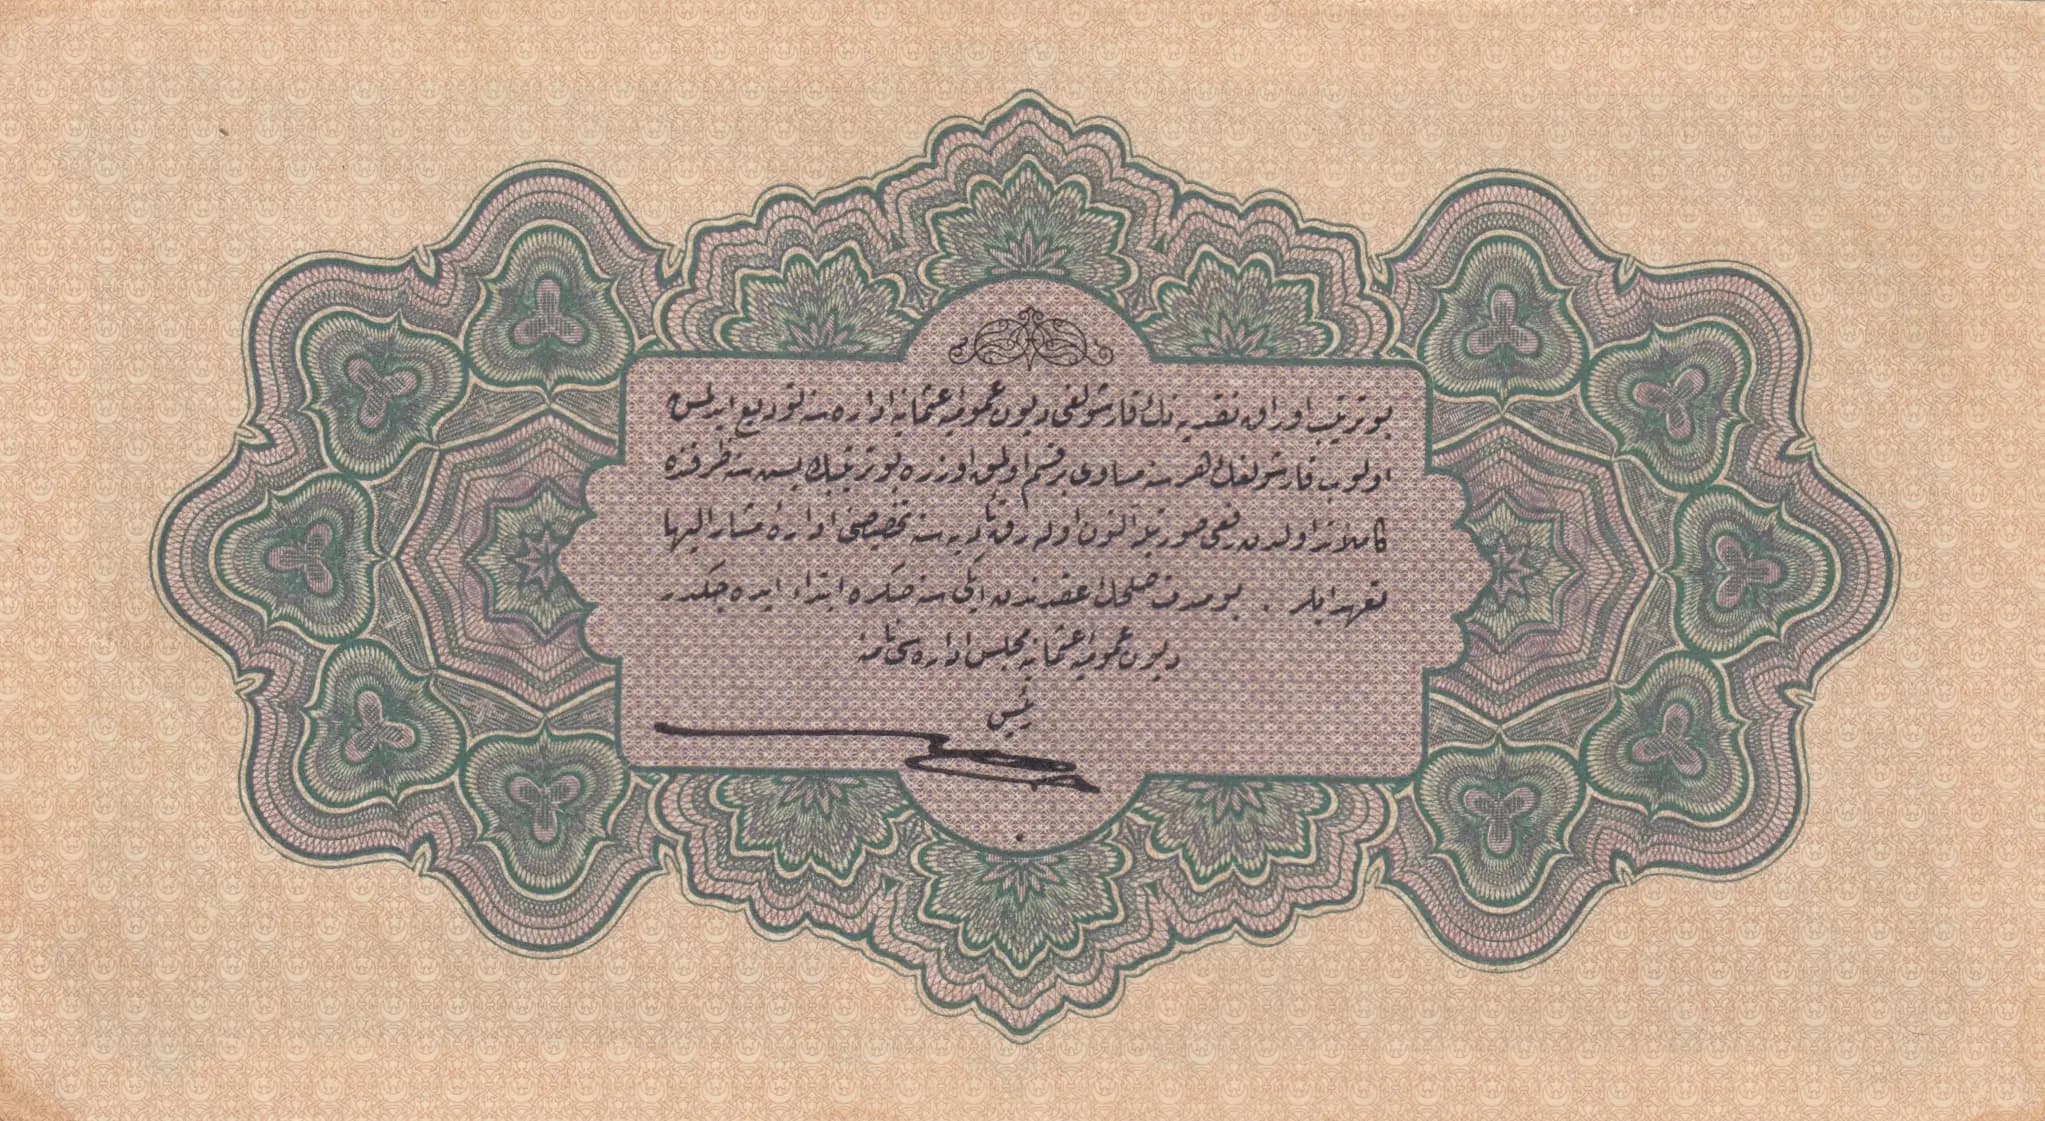 بو ترتیب اوراق نقدیه نك قارشولغی دیون عمومیهٔ عثمانیه اداره سنه تودیع ایدلمش
اولوب قارشولغك هر سنه مساوی بر قسم اولمق اوزره بو ترتیبك بش سنه ظرفنده
كاملاً تداولدن رفعی صورتیله آلتون اوله رق تأدیه سنه تخصیصنی ادارهٔ مشار الیها
تعهد ایلر . بو مدت صلحك عقدندن ایكی سنه صكره ابتداء ایده جكدر
دیون عمومیهٔ عثمانیه مجلس اداره سی نامنه
رئیس